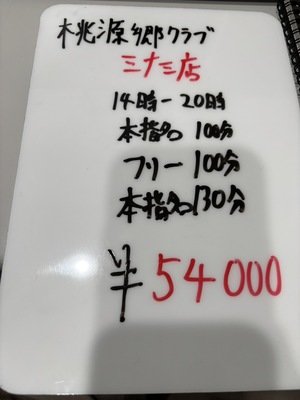 桃源郷クラブ
ミナミ店
14時-20時
本指名 100分
フリー100分
本指名130分
半 54000